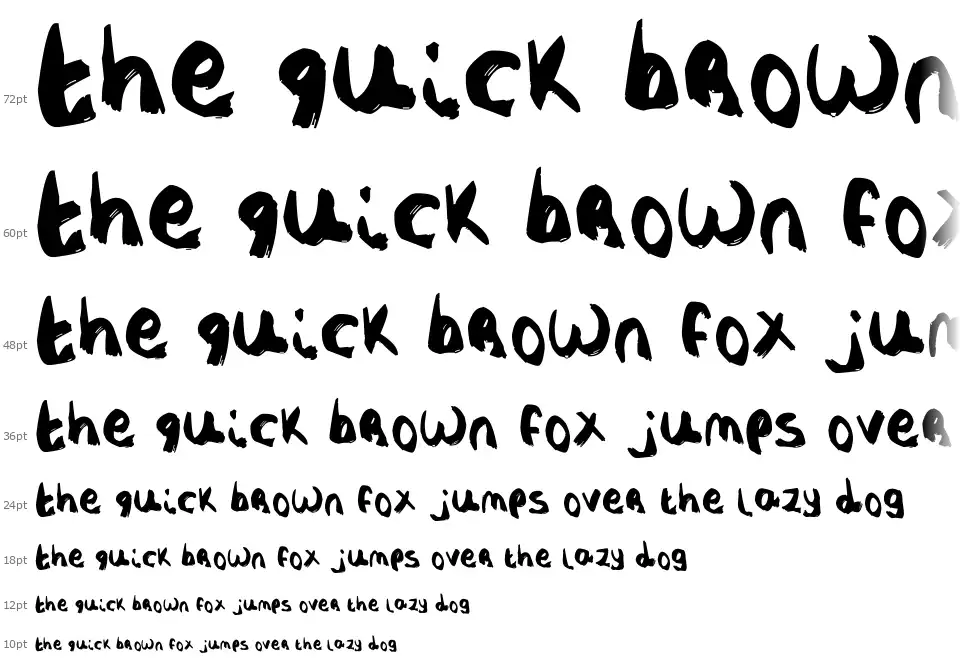 72pt the quick brown
60pt the quick brown fox
48pt the quick brown fox jun
36pt the quick brown fox jumps over
24pt the quick brown fox jumps over the lazy dog
18pt the quick brown fox jumps over the lazy dog
12pt the quick brown fox jumps over the lazy dog
10pt the quick brown fox jumps over the lazy dog